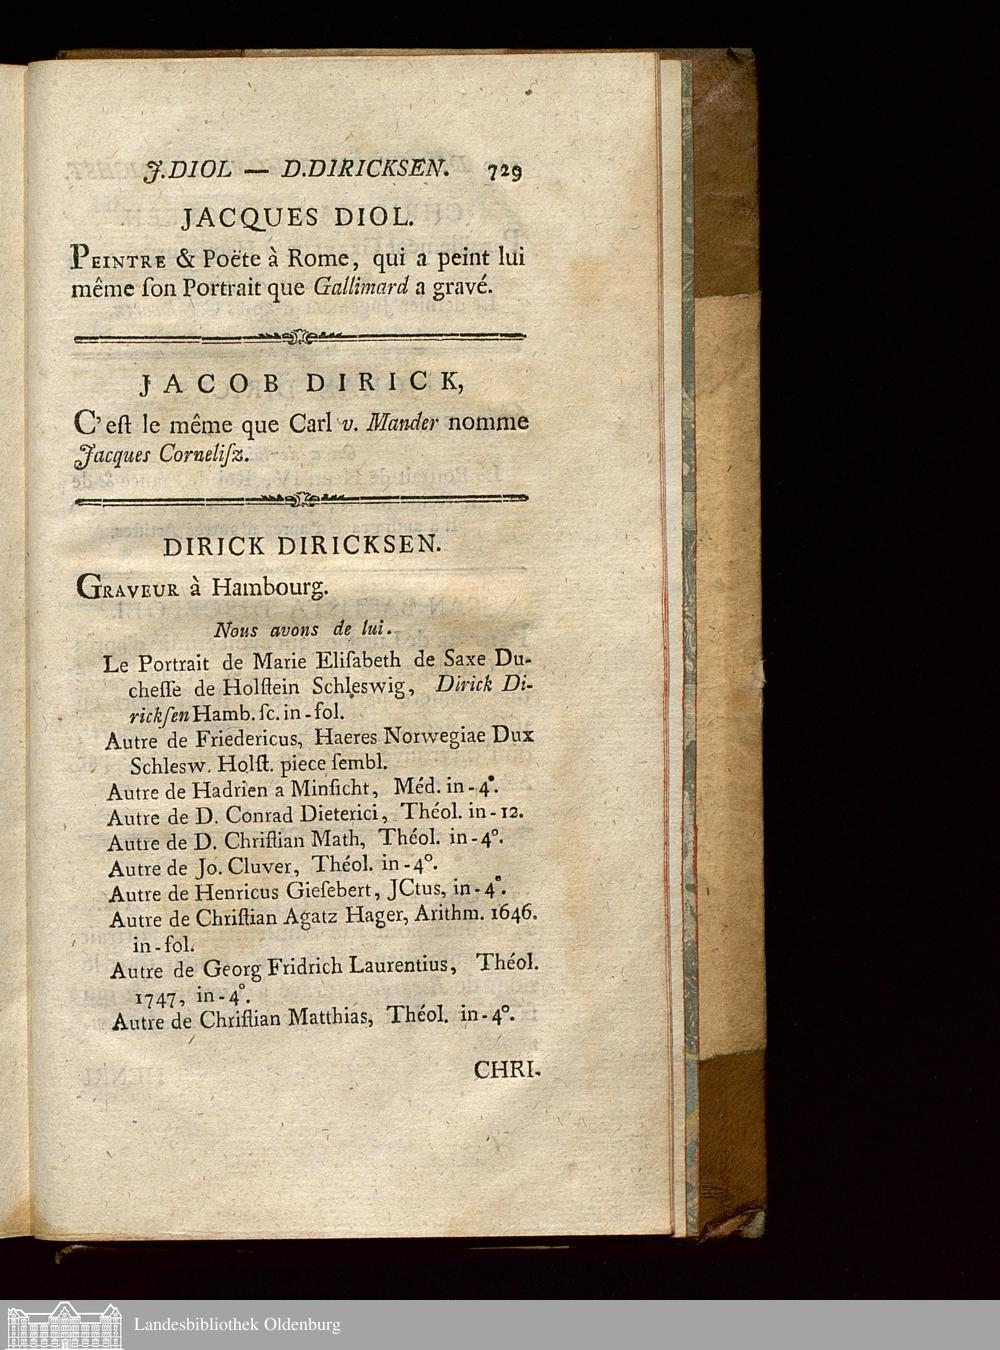 J. DIOL — D. DIRICKSEN. 729
JACQUES DIOL.
PEINTRE & Poëte à Rome, qui a peint lui
même ſon Portrait que Gallimard a gravé.
JACOB DIRICK,
C'eſt le même que Carl v. Mander nomme
Jacques Corneliſz.
DIRICK DIRICKSEN.
GRAVEUR à Hambourg.
Nous avons de lui.
Le Portrait de Marie Eliſabeth de Saxe Du-
cheſſe de Holſtein Schleswig, Dirick Di-
rickſen Hamb. ſc. in-fol.
Autre de Friedericus, Haeres Norwegiae Dux
Schlesw. Holſt. piece ſembl.
Autre de Hadrien a Minſicht, Méd. in-4°.
Autre de D. Conrad Dieterici, Théol. in-12.
Autre de D. Chriſtian Math, Théol. in-4°.
Autre de Jo. Cluver, Théol. in-4°.
Autre de Henricus Gieſebert, JCtus, in-4°.
Autre de Chriſtian Agatz Hager, Arithm. 1646.
in-fol.
Autre de Georg Fridrich Laurentius, Théol.
1747, in-4°.
Autre de Chriſtian Matthias, Théol. in-4°.
CHRI-
Landesbibliothek Oldenburg